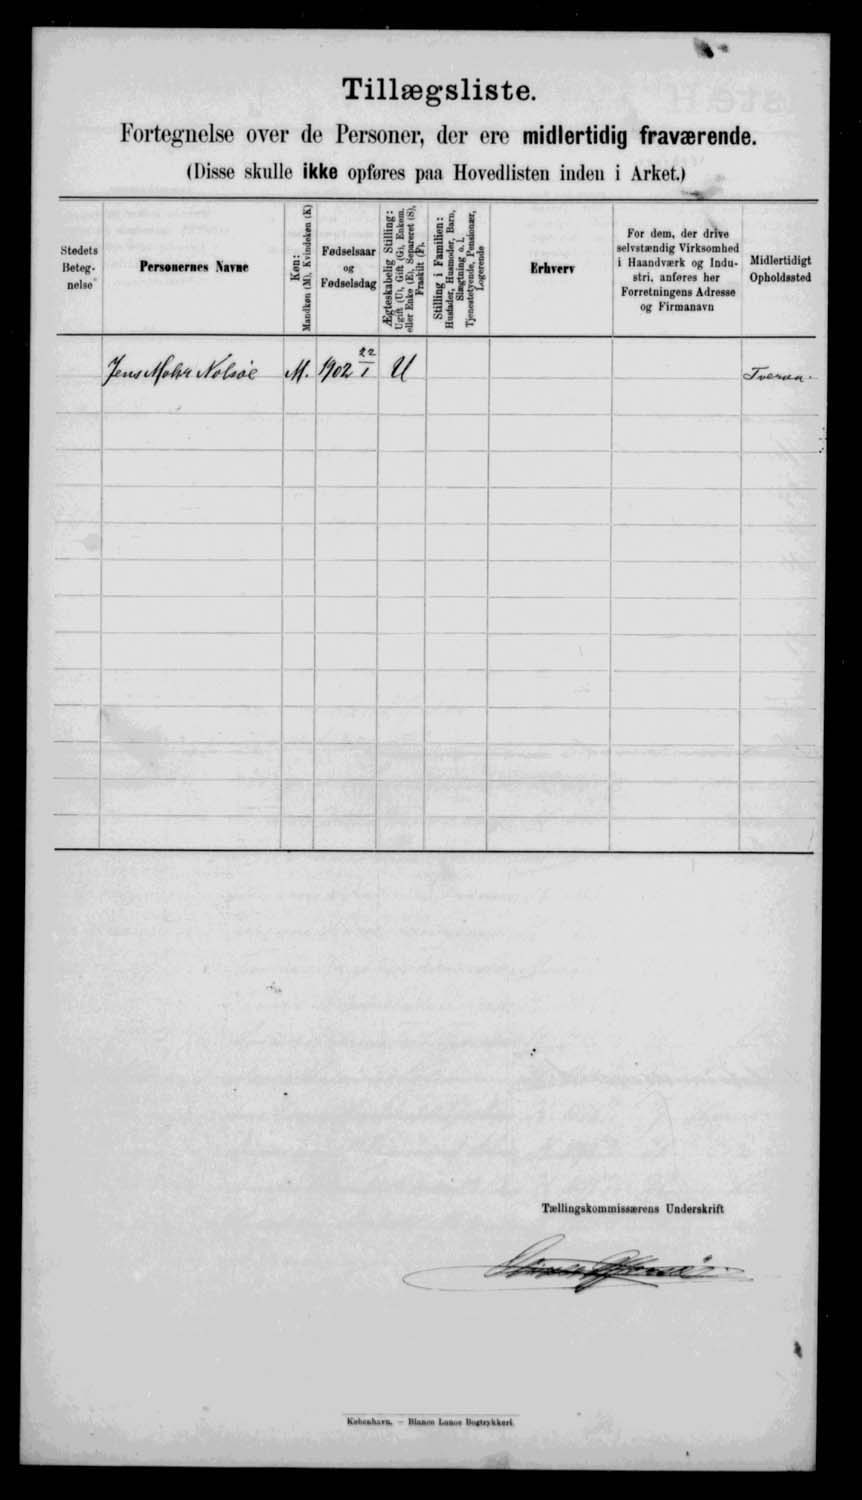 Tillægsliste.
Fortegnelse over de Personer, der ere midlertidig fraværende.
(Disse skulle ikke opføres paa Hovedlisten inden i Arket.)
Stedets
Beteg-
nelse
Personernes Navne
Køn:
Mandkøn (M), Kvindekøn (K)
Fødselsaar
og
Fødselsdag
Ægteskabelig Stilling:
Ugift (U), Gift (G), Enkem.
eller Enke (E), Separeret (S),
Fraskilt (F).
Stilling i Familien:
Husfader, Husmoder, Barn,
Slægtning o. l.
Tjenestetyende, Pensionær,
Logerende
Erhverv
For dem, der drive
selvstændig Virksomhed
i Haandværk og Indu-
stri, anføres her
Forretningens Adresse
og Firmanavn
Midlertidigt
Opholdssted
Jens Mohr Nolsøe M. 1902 22/1 U Tveraa.
Tællingskommissærens Underskrift
København. — Bianco Lunos Bogtrykkeri.